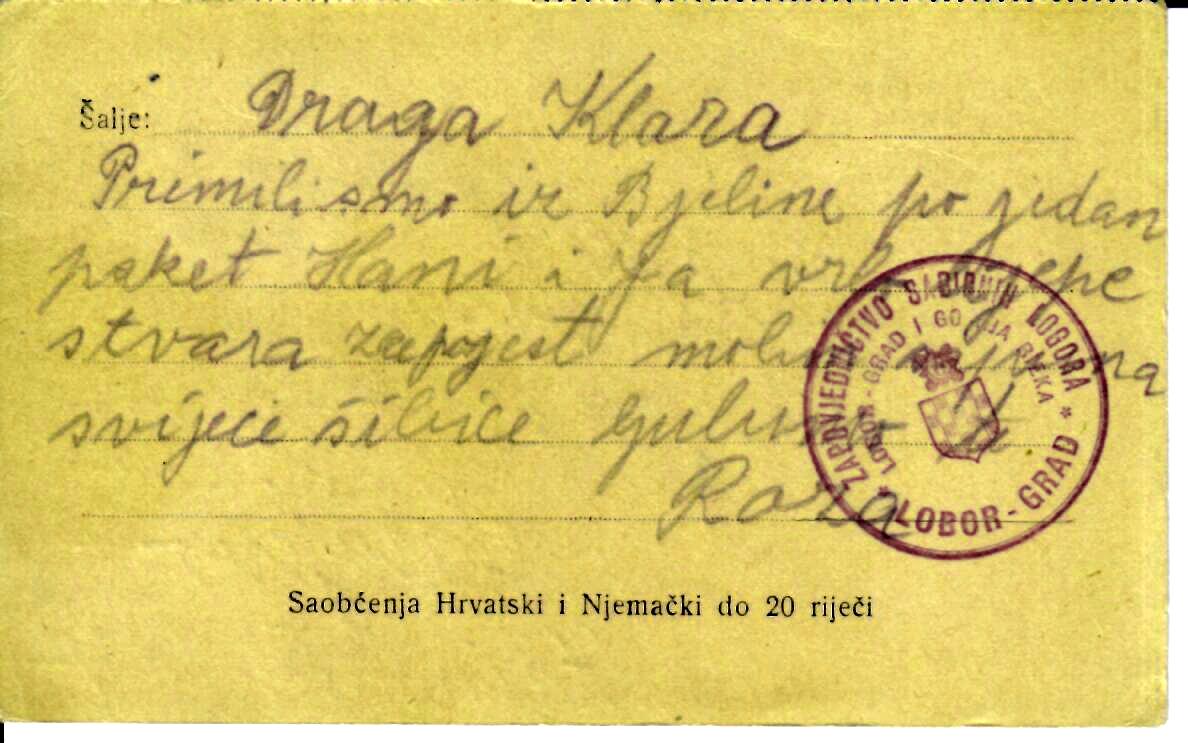 Šalje: Draga Klara
Primili smo iz Bjeline po jedan
paket Hani i Ja vrlo lijepe
stvara zapojest molim
svijeće šibice ljubi
Roza
ZAPOVJEDNIČTVO SABIRNIH LOGORA * LOBOR-GRAD *
LOBOR-GRAD I GORNJA RIJEKA
Saobćenja Hrvatski i Njemački do 20 riječi